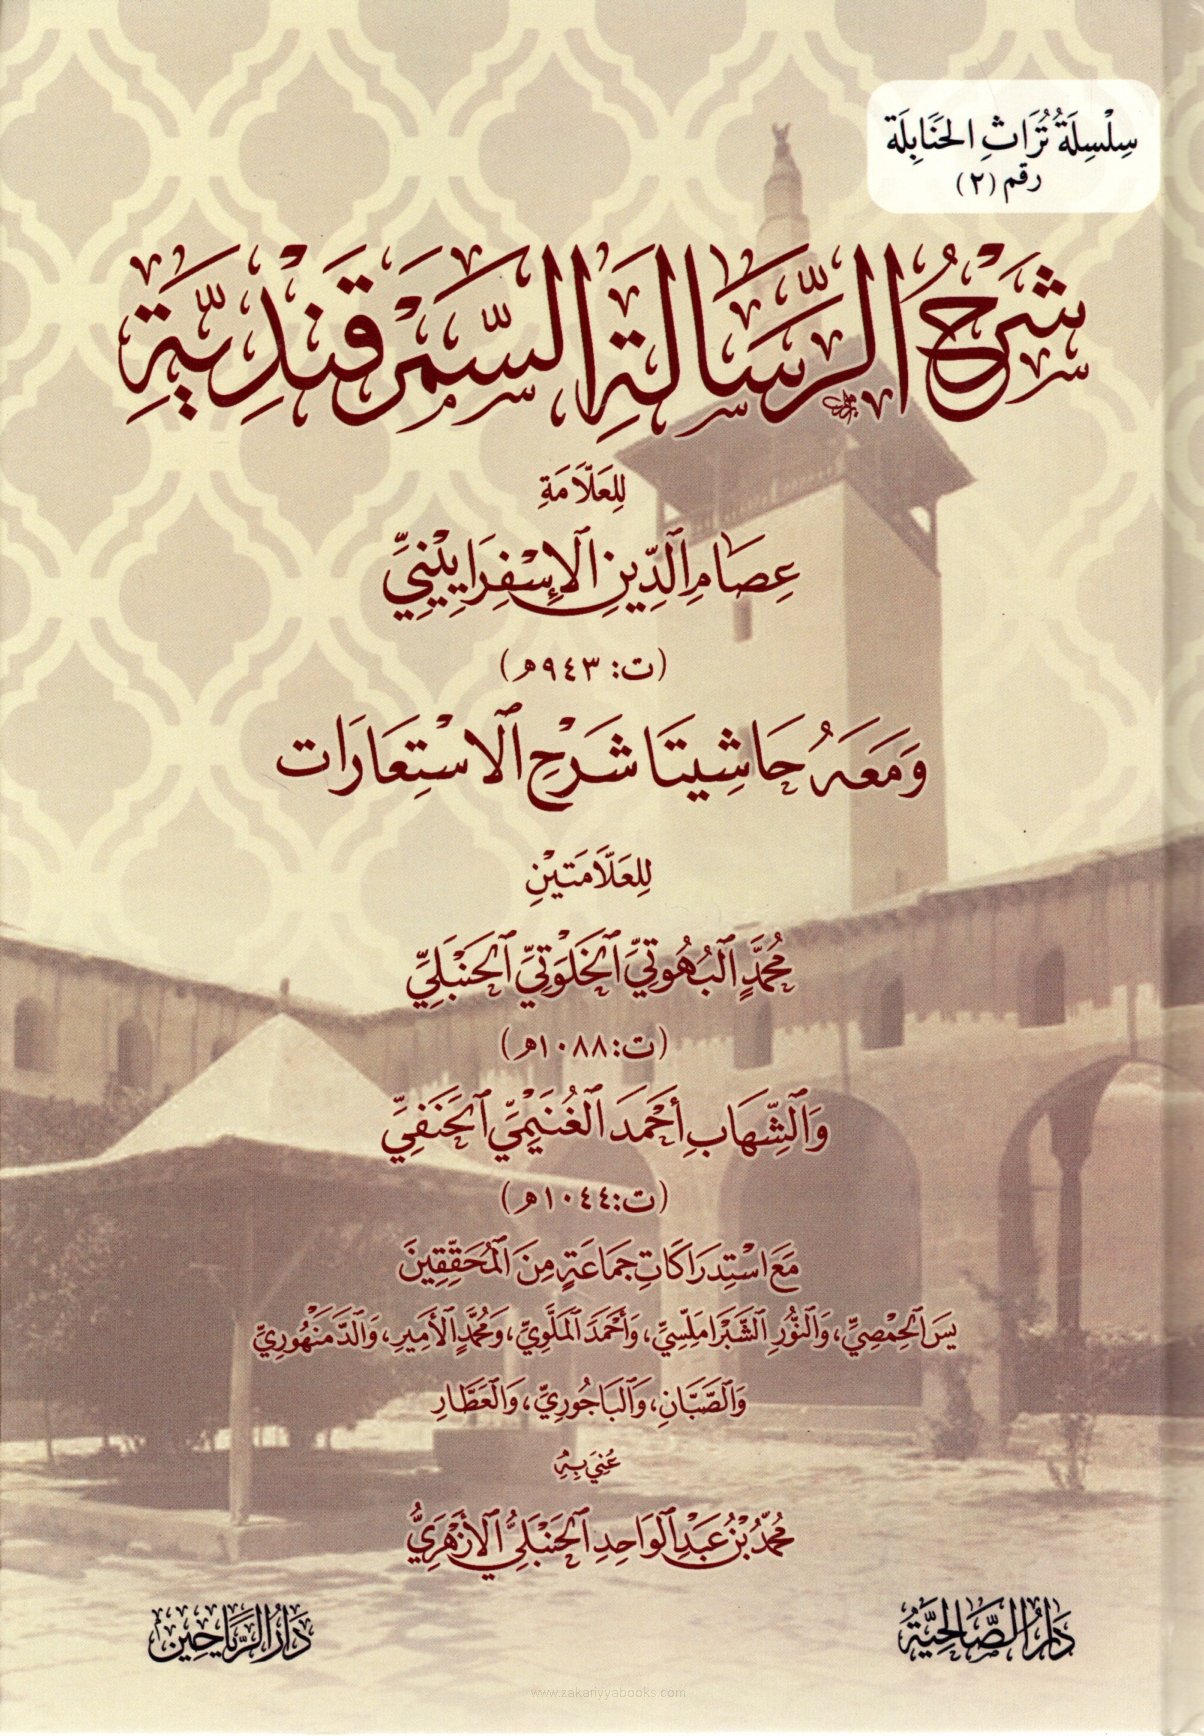 سِلْسِلَةُ تُرَاثِ الحَنَابِلَة
رقم (٢)
شَرْحُ الرِّسَالَةِ السَّمَرْقَنْدِيَّةِ
لِلعَلَّامَةِ
عِصَامِ ٱلدِّينِ ٱلإِسْفِرَايِينِيِّ
(ت: ٩٤٣هـ)
وَمَعَهُ حَاشِيتَا شَرْحِ ٱلاسْتِعَارَات
لِلعَلَّامَتَيْنِ
مُحَمَّدٍ ٱلبُهُوتِيِّ ٱلخَلْوَتِيِّ ٱلحَنْبَلِيِّ
(ت: ١٠٨٨هـ)
وَٱلشِّهَابِ أَحْمَدَ ٱلغُنَيْمِيِّ ٱلحَنَفِيِّ
(ت: ١٠٤٤هـ)
مَعَ اسْتِدرَاكَاتِ جَمَاعَةٍ مِنَ ٱلمُحَقِّقِينَ
يسَ ٱلحِمْصِيِّ، وَٱلنُّورِ ٱلشَّبْرَامَلِّسِيِّ، وَأَحْمَدَ ٱلمَلَّوِيِّ، وَمُحَمَّدٍ ٱلأَمِيرِ، وَٱلدَّمَنْهُورِيِّ
وَٱلصَّبَّانِ، وَٱلبَاجُورِيِّ، وَٱلعَطَّارِ
عُنِيَ بِهِ
مُحَمَّدُ بْنُ عَبْدِ ٱلوَاحِدِ ٱلحَنْبَلِيُّ ٱلأَزْهَرِيُّ
دَارُ الصَّالِحِيَّةِ
دَارُ الرَّيَاحِين
www.zakariyyabooks.com